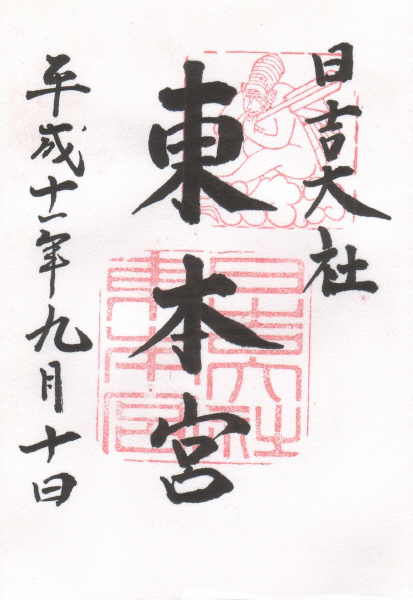 日吉大社
東本宮
平成十一年九月十日
日吉大社
東本宮